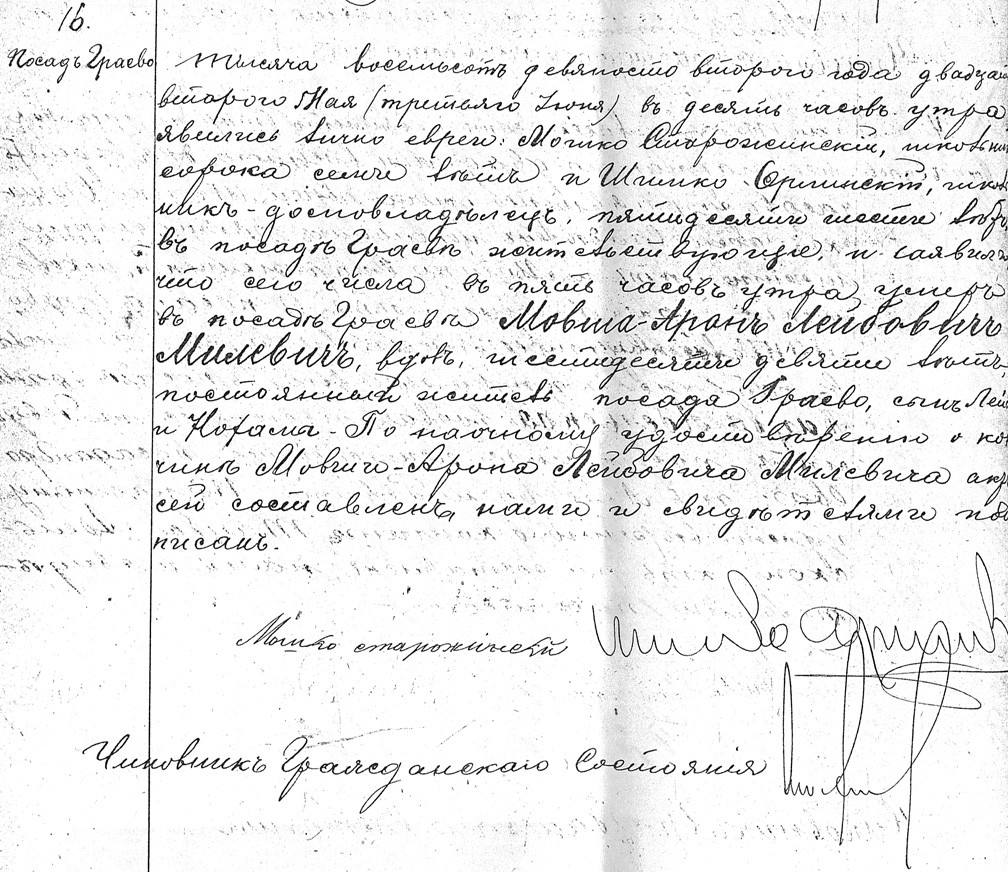 16.
Посадъ Граево
Тысяча восемьсотъ девяносто второго года двадцат
второго Мая (третьяго Іюня) въ десять часовъ утра
явились лично евреи: Мошко Сторожинскій, школьни
сорока семи лѣтъ и Шимко Орлинскій, школь
никъ-домовладѣлецъ, пятидесяти шести лѣтъ
въ посадѣ Граевѣ жительствующіе, и заявили
что сего числа въ пять часовъ утра, умеръ
въ посадѣ Граевѣ Мовша-Аронъ Лейбовичъ
Милевичъ, вдовъ, шестидесяти девяти лѣтъ,
постоянный житель посада Граево, сынъ Лей
и Нохамы. По наочному удостовѣренію о кон
чинѣ Мовши-Арона Лейбовича Милевича актъ
сей составленъ, нами и свидѣтелями под
писанъ.
Мошко старожинскій
Шимко
Чиновникъ Гражданскаго Состоянія